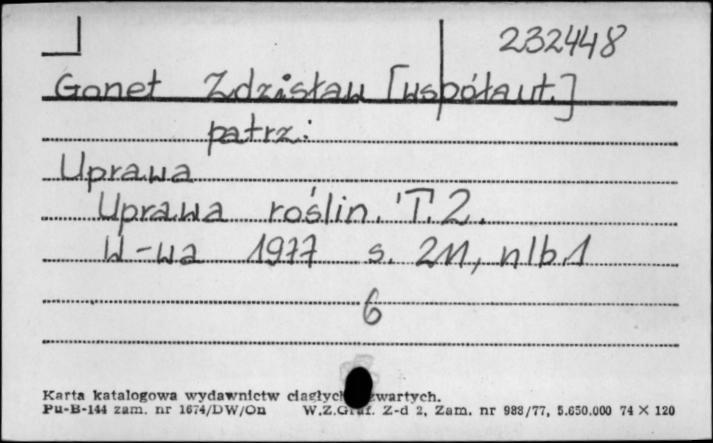 232448
Gonet Zdzisław [współaut.]
patrz:
Uprawa
Uprawa roślin. T. 2.
W-wa 1977 s. 211, nlb. 1
6
Karta katalogowa wydawnictw ciągłych zwartych.
Pu-B-144 zam. nr 1674/DW/On W.Z.Graf. Z-d 2, Zam. nr 988/77, 5.650.000 74 × 120